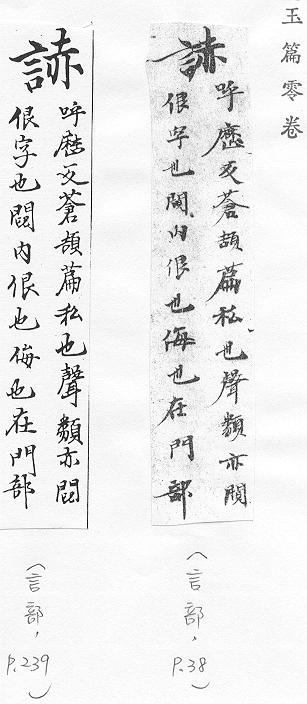 玉篇零卷
呼歷反蒼頡篇私也聲類亦鬩
佷字也鬩內佷也侮也在門部
（言部，P.38）
呼歷反蒼頡篇私也聲類亦鬩
佷字也鬩內佷也侮也在門部
（言部，P.239）